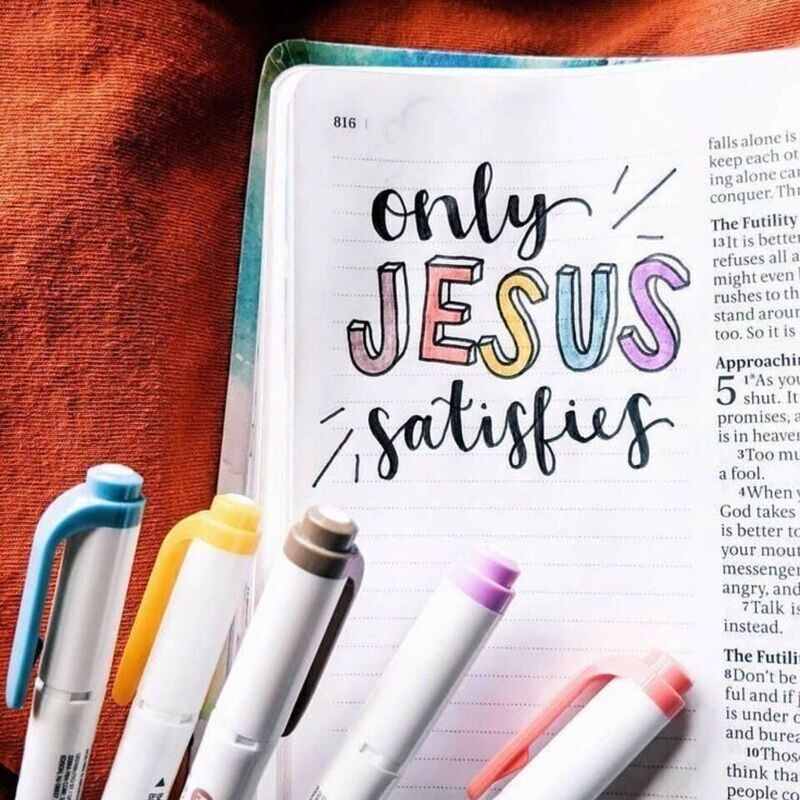 816
only
JESUS
satisfies
falls alone is
keep each
ing alone
conquer.
The Futility
13It is better
refuses all
might even
rushes to
stand
too. So it is
5 1*As you
shut. It
promises,
is in heaven
3Too
a fool.
4When
God takes
is better to
your
messenger
angry, and
7Talk is
instead.
The
8Don't be
ful and if
is under
and
10Those
think
people